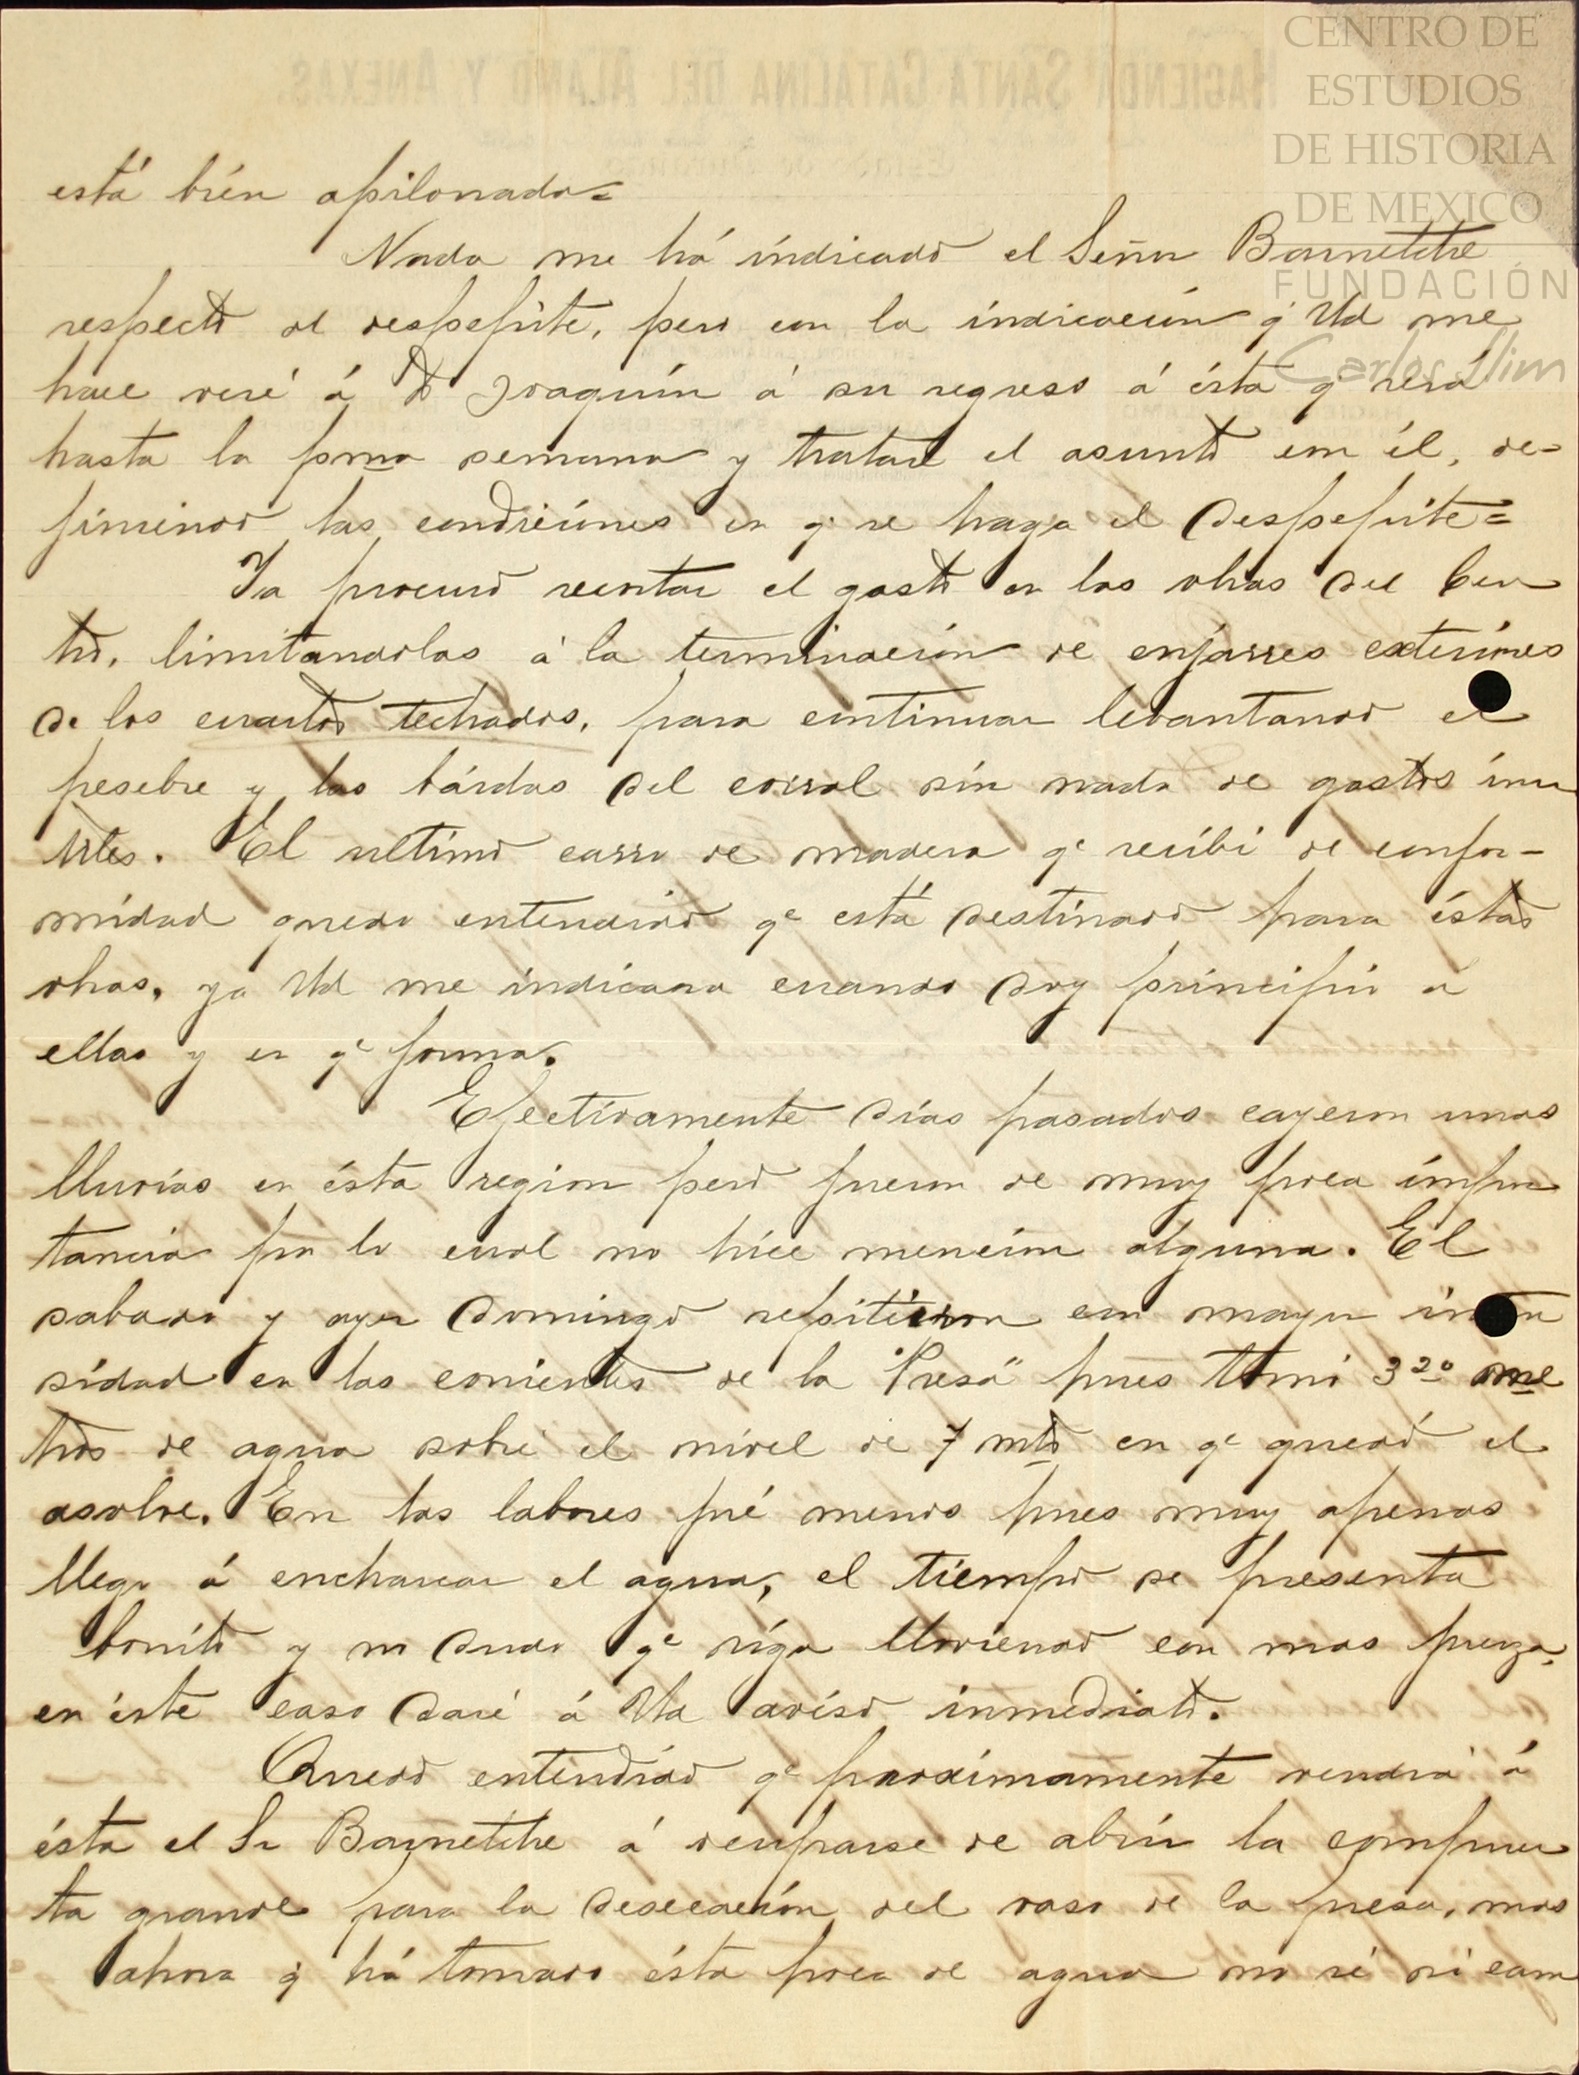 CENTRO DE
ESTUDIOS
DE HISTORIA
DE MEXICO
FUNDACIÓN
Carlos Slim
HACIENDA SANTA CATALINA DEL ALAMO Y ANEXAS.
está bién apilonado=
Nada me há indicado el Señor Barnetche
respecto al despepite, pero con la indicación q̇ Ud me
hace veré á D Joaquín á su regreso á ésta q̇ será
hasta la pma semana y trataré el asunto con él, de-
finiendo las condiciones en q̇ se haga el despepite=
Ya procuro recortar el gasto en las obras del Cen
tro, limitandolas á la terminación de enjarres exteriores
de los cuartos techados, para continuar levantando el
pesebre y las bárdas del corral sín nada de gastos inu
tiles. El ultimo carro de madera qe recibí de confor-
midad quedo entendido qe está destinado para éstas
obras, ya Ud me indicara cuando doy principio a
ellas y en qe forma.
Efectivamente días pasados cayeron unas
lluvias en ésta region pero fueron de muy poca impor
tancia por lo cual no hice mencion alguna. El
sabado y ayer Domingo repitieron con mayor inten
sidad en las corrientes de la "Presa" pues tomó 3 20 me
tros de agua sobre el nivel de 7 mts en qe quedó el
asolve. En las labores fué menos pues muy apenas
llego á encharcar el agua, el tiempo se presenta
bonito y no dudo qe siga lloviendo con mas fuerza,
en éste caso daré á Ud aviso inmediato.
Quedo entendido qe proximamente vendrá á
ésta el Sr Barnetche á ocuparse de abrir la compuer
ta grande para la desecación del vaso de la presa, mas
ahora q̇ há tomado ésta poca de agua no sé si cam